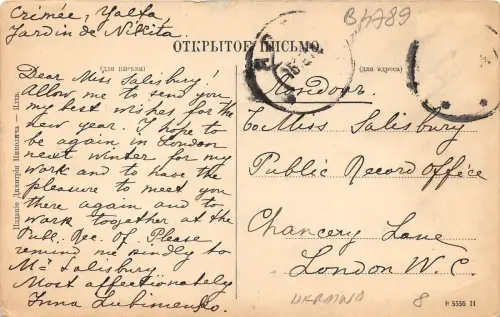 Crimée, Yalta
Jardin de Nikita
B4789
ОТКРЫТОЕ ПИСЬМО.
(для письма)
(для адреса)
Dear Miss Salisbury!
Allow me to send you
my best wishes for the
new year. I hope to
be again in London
next winter for my
work and to have the
pleasure to meet you
there again and to
work together at the
Publ. Rec. Of. Please
remind me kindly to
Mʳ Salisbury
Most affectionately
Inna Lubimenko.
Изданіе Дмитрія Николича — Ялта.
Лондонъ.
To Miss Salisbury
Public Record Office
Chancery Lane
London W. C.
UKRAINA
8
H 5556 11